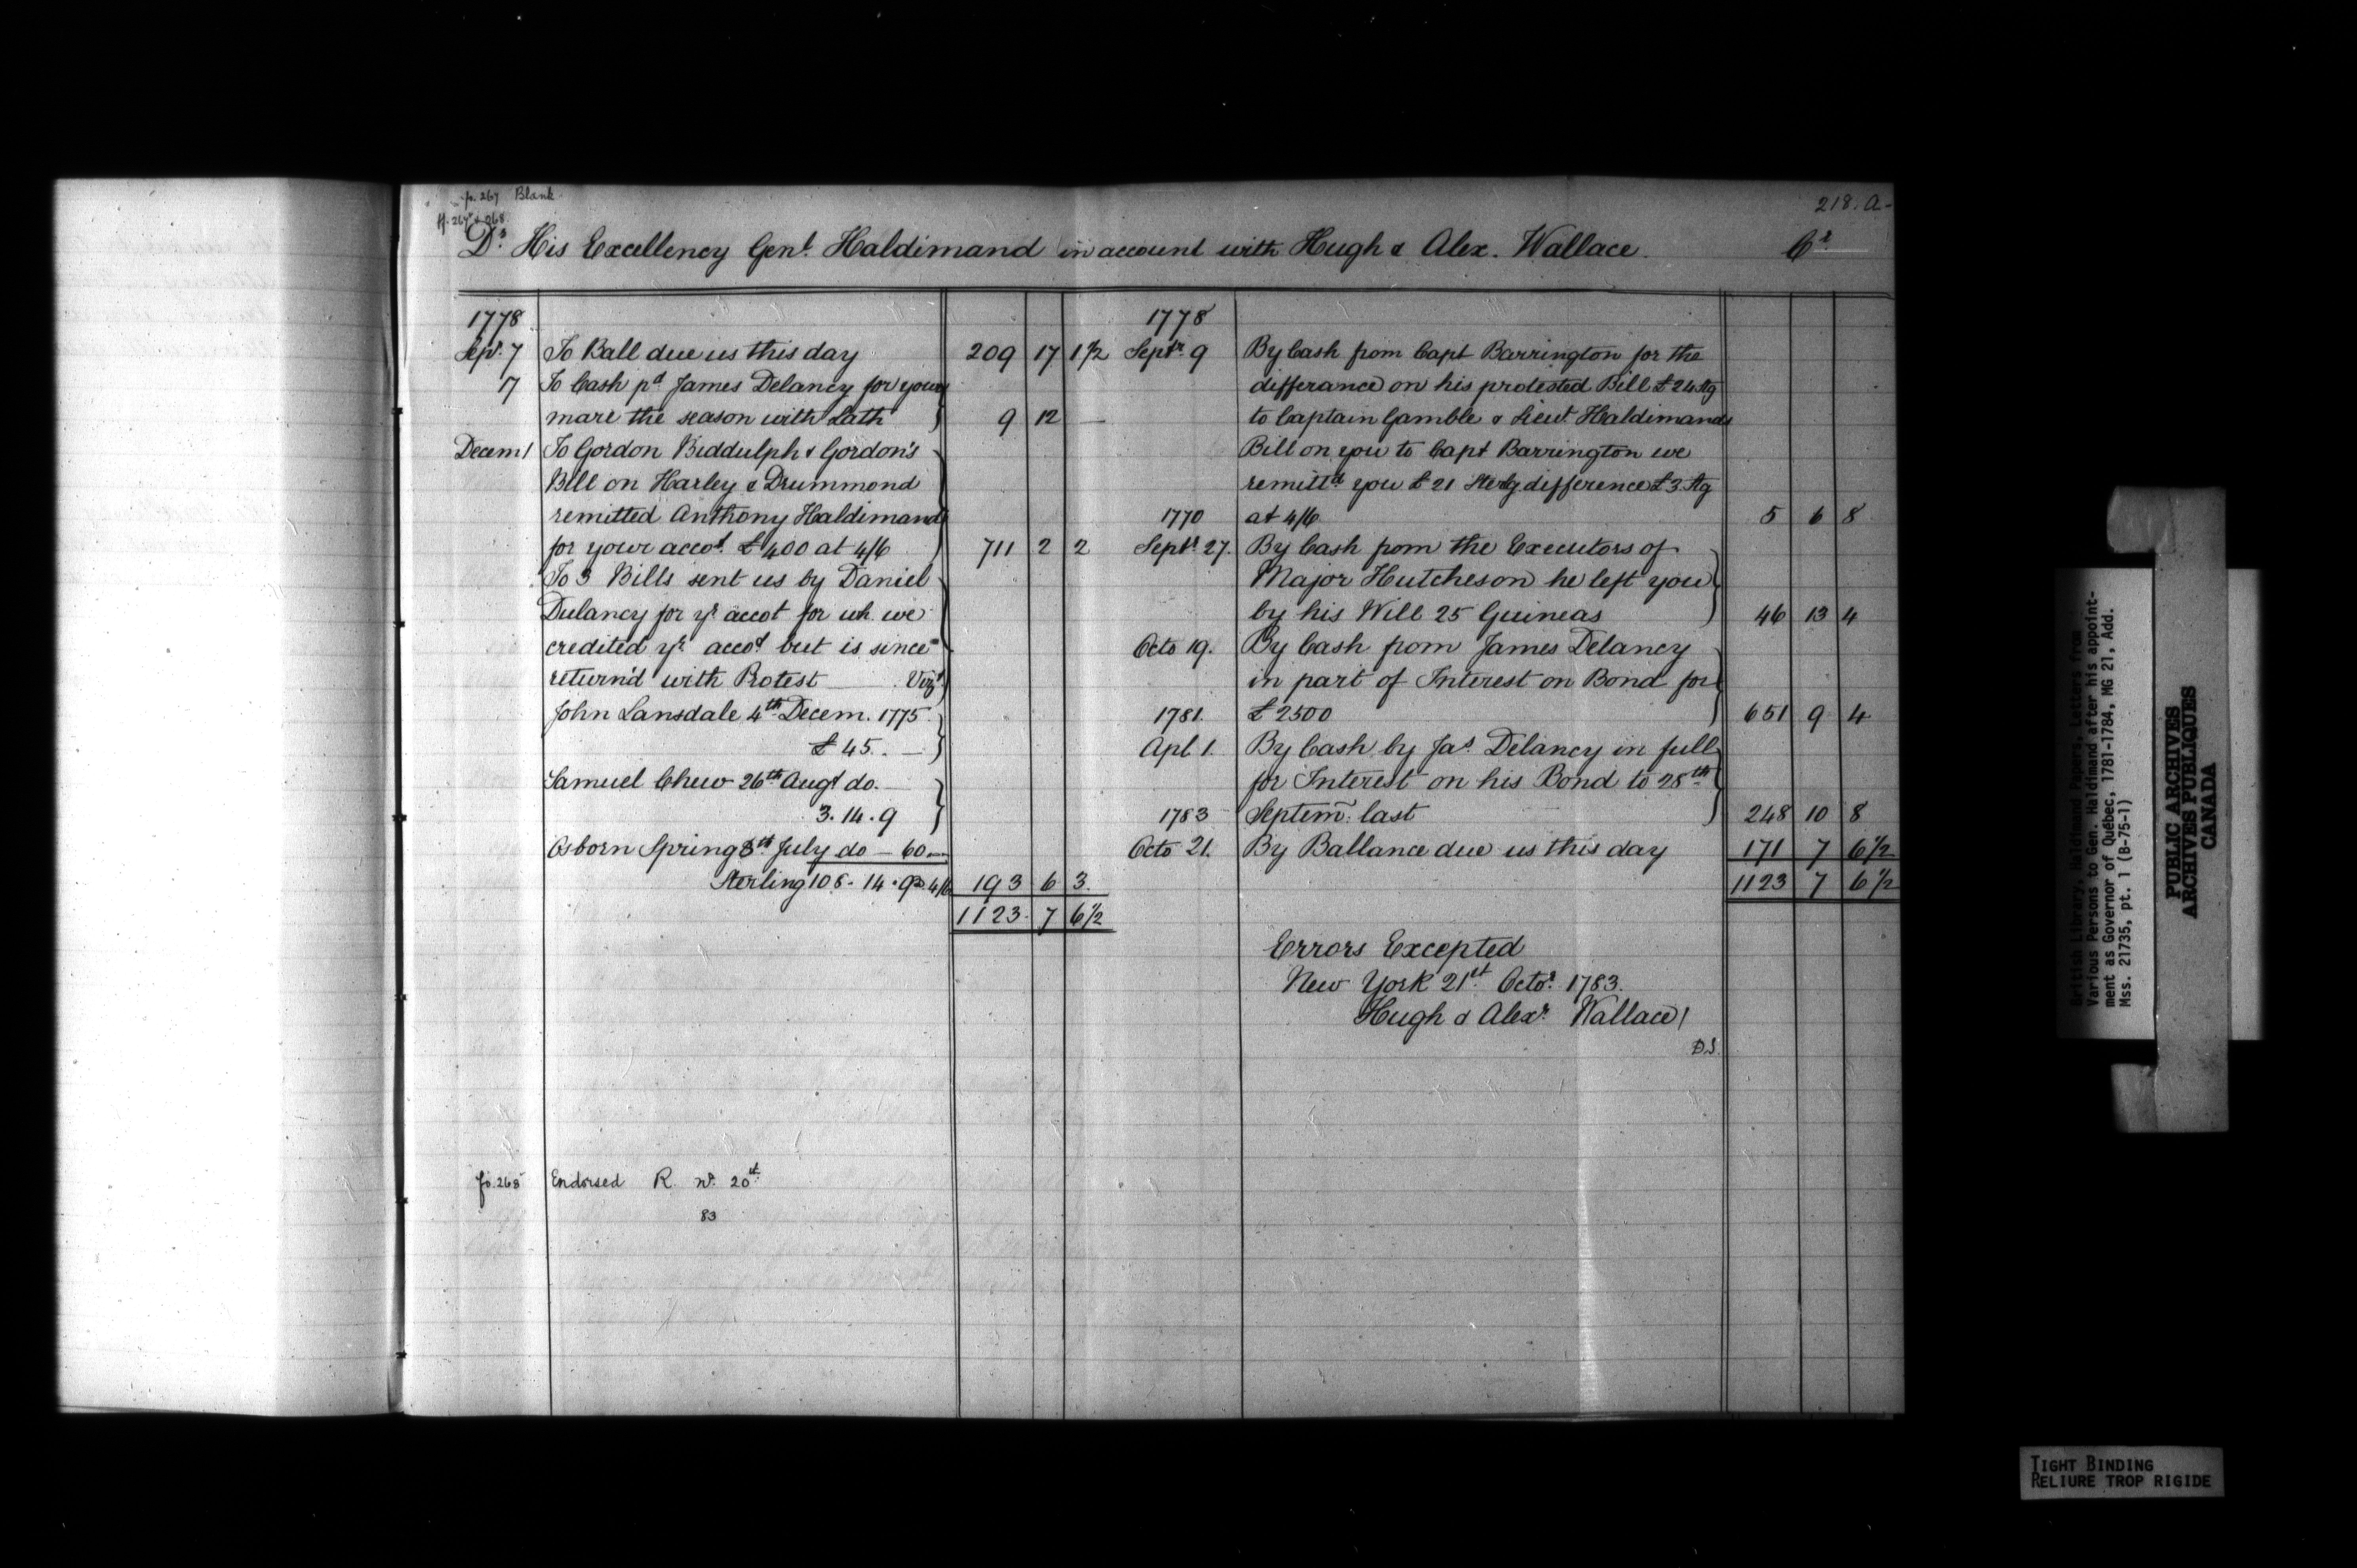 fo. 267 Blank
ff. 267v & 268
218. A-
Dr. His Excellency Genl. Haldimand in account with Hugh & Alex. Wallace. Cr
1778
Sepr. 7 To Ball due us this day 209 17 1 1/2
17 To Cash pd James Delancy for your
mare the season with Lath 9 12 —
Decem 1 To Gordon Biddulph & Gordon's
Bill on Harley & Drummond
remitted Anthony Haldimand
for your accot. £400 at 4/6 711 2 2
To 3 Bills sent us by Daniel
Dulancy for yr accot for wh. we
credited yr accot but is since
return'd with Protest Vizt.
John Lansdale 4th Decem. 1775.
£45. —
Samuel Chew 26th Augt do. —
3. 14. 9
Osborn Spring 8th July do — 60 —
Sterling 108. 14. 9 @ 4/6 193 6 3.
1123. 7 6 1/2
1778
Septr. 9 By Cash from Capt Barrington for the
differance on his protested Bill £24 Stg
to Captain Gamble & Lieut. Haldimands
Bill on you to Capt Barrington we
remittd you £21 Sterlg difference £3 Stg
1770 at 4/6 5 6 8
Septr. 27. By Cash from the Executors of
Major Hutcheson he left you
by his Will 25 Guineas 46 13 4
Octo 19. By Cash from James Delancy
in part of Interest on Bond for
1781. £2500 651 9 4
Apl. 1. By Cash by Jas. Delancy in full
for Interest on his Bond to 28th
1783 Septem. last 248 10 8
Octo 21. By Ballance due us this day 171 7 6 1/2
1123 7 6 1/2
Errors Excepted
New York 21st Octor. 1783.
Hugh & Alexr. Wallace
D.S.
fo. 268 Endorsed R. No. 20st
83
British Library, Haldimand Papers, Letters from
Various Persons to Gen. Haldimand after his appoint-
ment as Governor of Québec, 1781-1784, MG 21, Add.
Mss. 21735, pt. 1 (B-75-1)
PUBLIC ARCHIVES
ARCHIVES PUBLIQUES
CANADA
TIGHT BINDING
RELIURE TROP RIGIDE